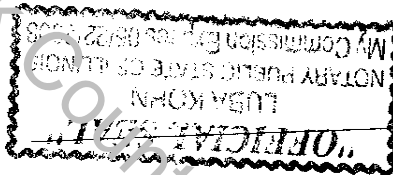 "OFFICIAL SEAL"
LUBA KOHN
NOTARY PUBLIC STATE OF ILLINOIS
My Commission Expires